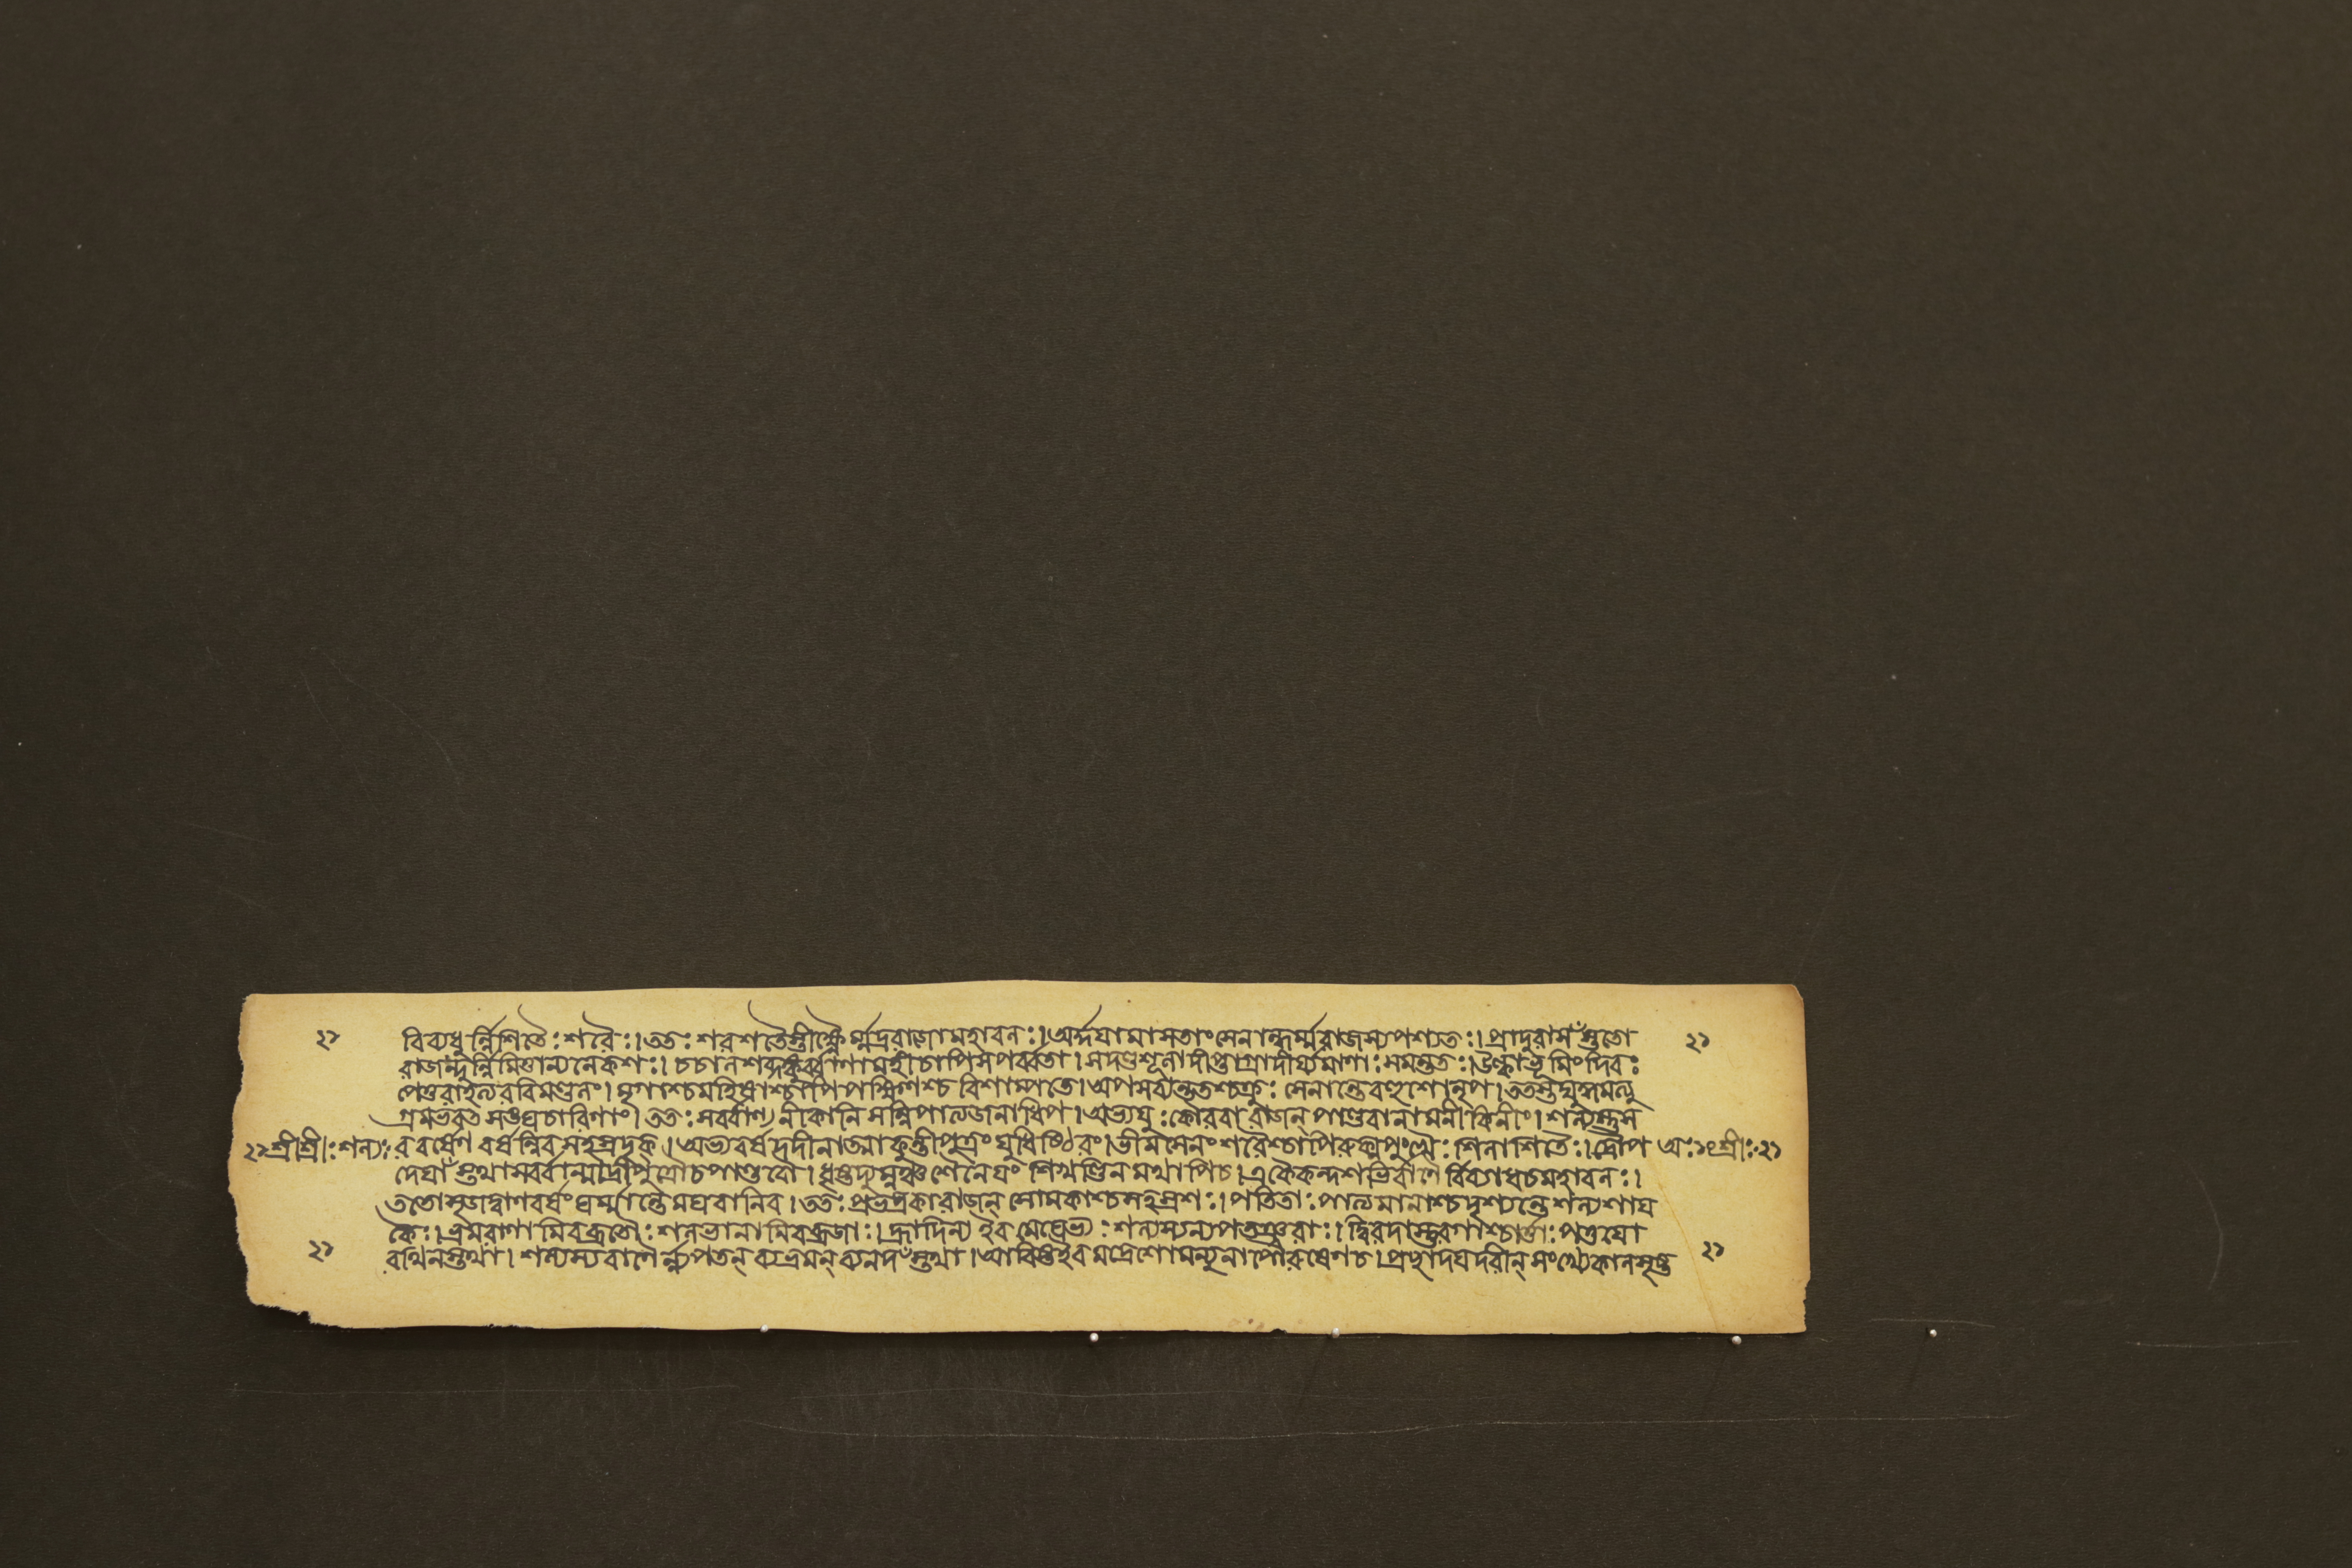 ২১ বিব্যধুর্ন্নিশিতৈঃ শরৈঃ। ততঃ শরশতৈস্তীক্ষ্ণৈর্ম্মদ্ররাজো মহাবলঃ। অর্দ্দয়ামাস তাং সেনান্ধর্ম্মরাজস্য পশ্যতঃ। প্রাদুরাসঁস্ততো ২১
রাজন্দুর্ন্নিমিত্তান্যনেকশঃ। চচাল শব্দঙ্কুর্ব্বাণা মহী চাপি সপর্ব্বতা। সদণ্ডশূলা দীপ্তাগ্রা দীর্য্যমাণাঃ সমন্ততঃ। উল্কা ভূমিং দিবঃ
পেতুরাহত্য রবিমণ্ডলং। মৃগাশ্চ মহিষাশ্চাপি পক্ষিণশ্চ বিশাম্পতে। অপসব্যন্ততশ্চক্রুঃ সেনান্তে বহুশো নৃপ। ততস্তদ্যুদ্ধমত্যু
গ্রমভবৎ সঙ্ঘচারিণাং। ততঃ সর্ব্বাণ্যনীকানি সন্নিপাত্য জনাধিপ। অভ্যযুঃ কৌরবা রাজন্ পাণ্ডবানামনীকিনীং। শল্যস্তু স
২১ শ্রীশ্রীঃ শল্যঃ র বর্ষেণ বর্ষন্নিব সহস্রদৃক্। অভ্যবর্ষদদীনাত্মা কুন্তীপুত্রং যুধিষ্ঠিরং। ভীমসেনং শরৈশ্চাপি রুক্মপুংখৈঃ শিলাশিতৈঃ। দ্রৌপ অঃ ১৫ শ্রীঃ ২১
দেয়াঁস্তথা সর্ব্বান্মাদ্রীপুত্রৌ চ পাণ্ডবৌ। ধৃষ্টদ্যুম্নঞ্চ শৈনেয়ং শিখণ্ডিনমথাপি চ। একৈকন্দশভির্ব্বাণৈর্ব্বিব্যাধ চ মহাবলঃ।
ততোসৃজদ্বাণবর্ষং ঘর্ম্মান্তে মঘবানিব। ততঃ প্রভদ্রকা রাজন্ সোমকাশ্চ সহস্রশঃ। পতিতাঃ পাত্যমানাশ্চ দৃশ্যন্তে শল্যশায়
কৈঃ। ভ্রমরাণামিব ব্রাতাঃ শলভানামিব ব্রজাঃ। হ্রাদিন্য ইব মেঘেভ্যঃ শল্যস্য ন্যপতঞ্ছরাঃ। দ্বিরদাস্তুরগাশ্চার্ত্তাঃ পত্তয়ো
২১ রথিনস্তথা। শল্যস্য বাণৈর্ন্ন্যপতন্ বভ্রমন্ ব্যনদঁস্তথা। আবিষ্ট ইব মদ্রেশো মন্যুনা পৌরুষেণ চ। প্রাচ্ছাদয়দরীন্ সংখ্যে কালসৃষ্ট ২১